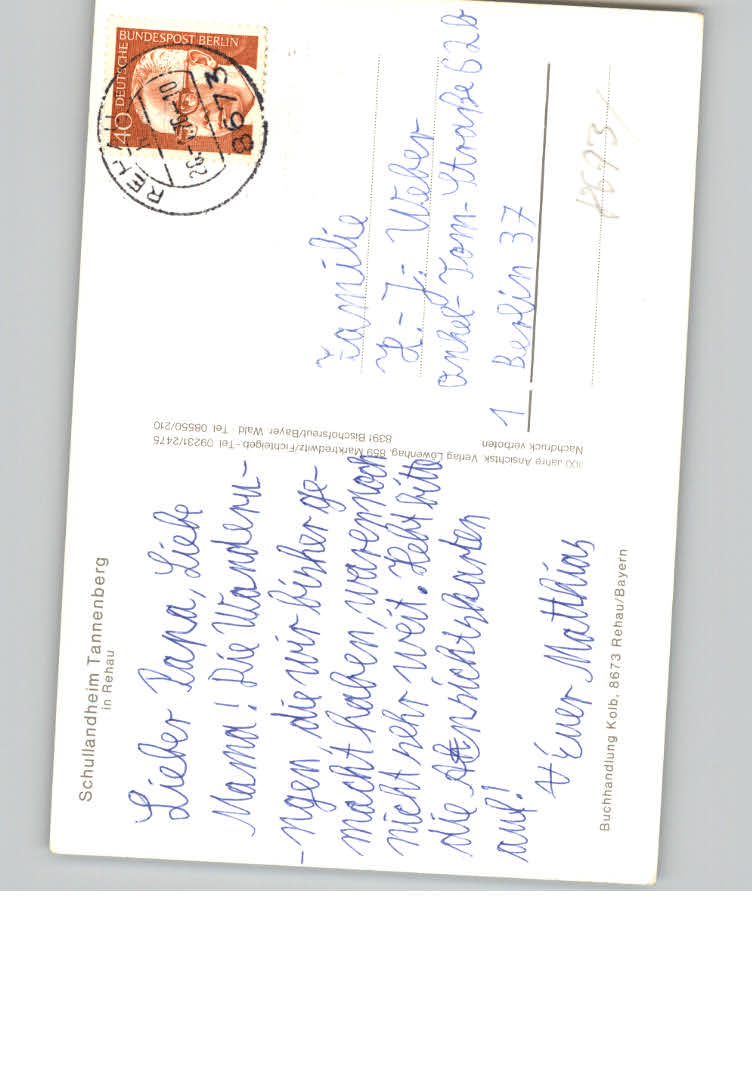 Schullandheim Tannenberg
in Rehau
Lieber Papa, Liebe
Mama! Die Wanderu-
-ngen die wir bisher ge-
macht haben, waren noch
nicht sehr weit. Hebt bitte
die Ansichtskarten
auf!
Euer Matthias
Buchhandlung Kolb, 8673 Rehau/Bayern
100 Jahre Ansichtsk. Verlag Löwenhag, 859 Marktredwitz/Fichtelgeb - Tel. 09231/2475
8391 Bischofsreut/Bayer. Wald · Tel. 08550/210
Nachdruck verboten
DEUTSCHE BUNDESPOST BERLIN
40
REHAU
8673
Familie
H.-J.- Weber
Onkel-Tom-Straße 62b
1 Berlin 37